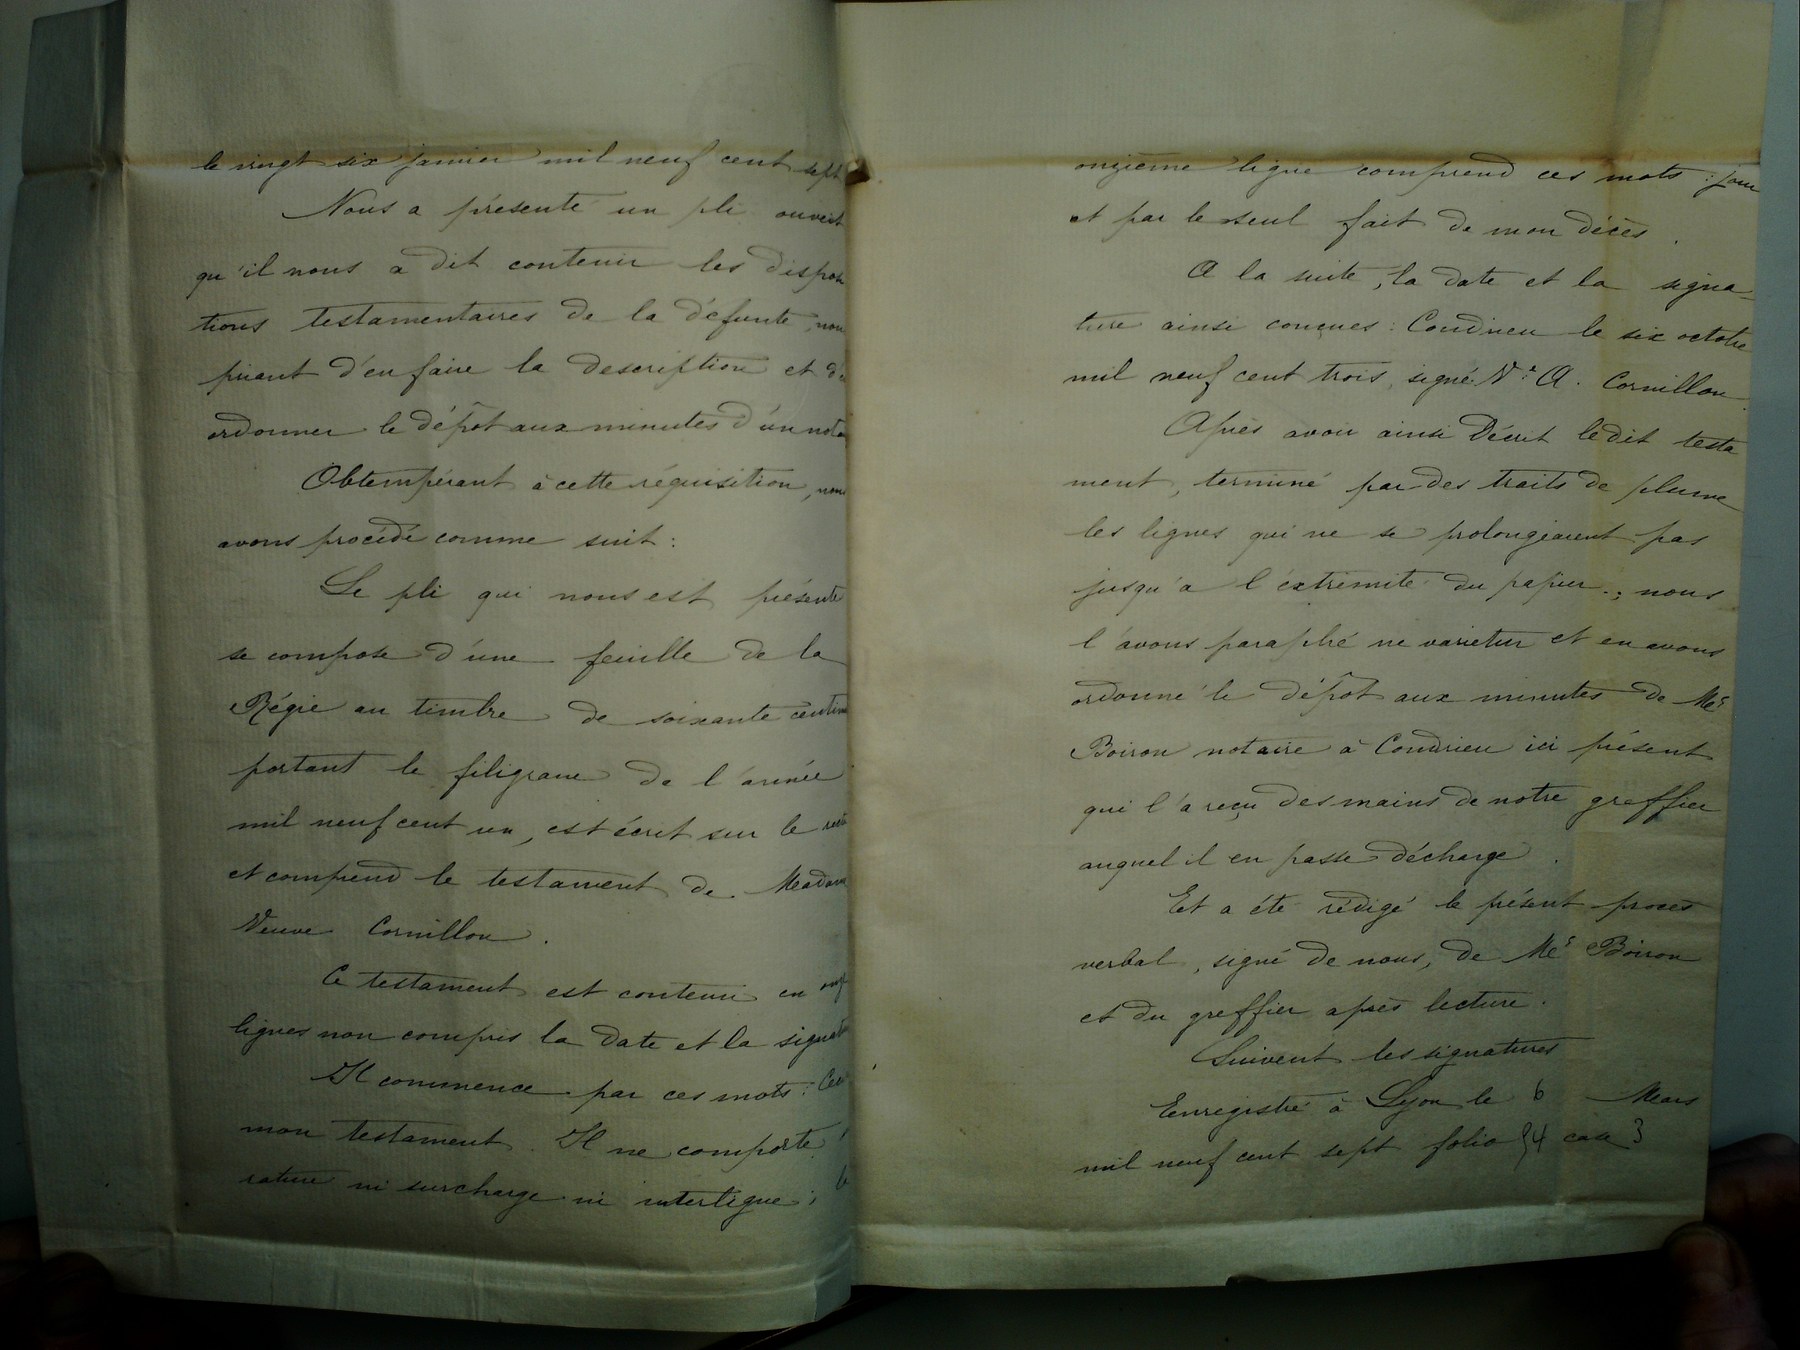 le vingt six janvier mil neuf cent sept
Nous a présenté un pli ouvert
qu'il nous a dit contenir les disposi
tions testamentaires de la défunte, nous
priant d'en faire la description et d'en
ordonner le dépôt aux minutes d'un nota
Obtempérant à cette réquisition, nous
avons procédé comme suit :
Le pli qui nous est présenté
se compose d'une feuille de la
Régie au timbre de soixante centim
portant le filigrane de l'année
mil neuf cent un, est écrit sur le recto
et comprend le testament de Madame
Veuve Cornillon.
Ce testament est contenu en onze
lignes non compris la date et la signature
Il commence par ces mots : Ceci
mon testament. Il ne comporte
rature ni surcharge ni interligne ; la
onzième ligne comprend ces mots : jour
et par le seul fait de mon décès.
A la suite, la date et la signa-
ture ainsi conçues : Condrieu le six octobre
mil neuf cent trois, signé Vve A. Cornillon.
Après avoir ainsi décrit ledit testa
ment, terminé par des traits de plume
les lignes qui ne se prolongeaient pas
jusqu'à l'extrémité du papier, nous
l'avons paraphé ne varietur et en avons
ordonné le dépôt aux minutes de Me
Boiron notaire à Condrieu ici présent
qui l'a reçu des mains de notre greffier
auquel il en passe décharge.
Et a été rédigé le présent procès
verbal, signé de nous, de Me Boiron
et du greffier après lecture.
Suivent les signatures
Enregistré à Lyon le 6 Mars
mil neuf cent sept folio 94 case 3